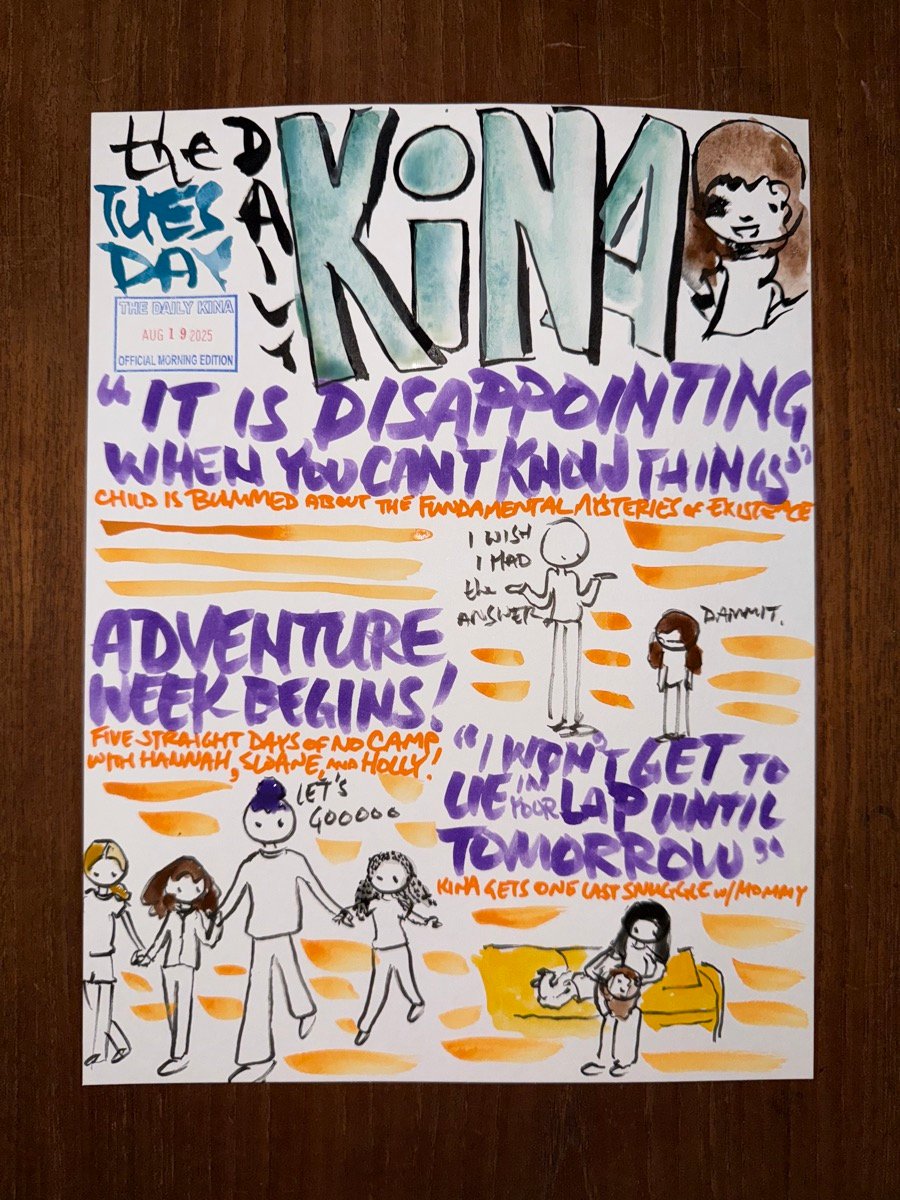 the DAILY KiNA
TUES
DAY
THE DAILY KINA
AUG 19 2025
OFFICIAL MORNING EDITION
"IT IS DISAPPOINTING
WHEN YOU CAN'T KNOW THINGS"
CHILD IS BUMMED ABOUT THE FUNDAMENTAL MYSTERIES OF EXISTENCE
I WISH
I HAD
the
ANSWER
DAMMIT.
ADVENTURE
WEEK BEGINS!
FIVE STRAIGHT DAYS OF NO CAMP
WITH HANNAH, SLOANE, AND HOLLY!
LET'S
GOOOOO
"I WON'T GET TO
LIE IN YOUR LAP UNTIL
TOMORROW"
KINA GETS ONE LAST SNUGGLE W/ MOMMY